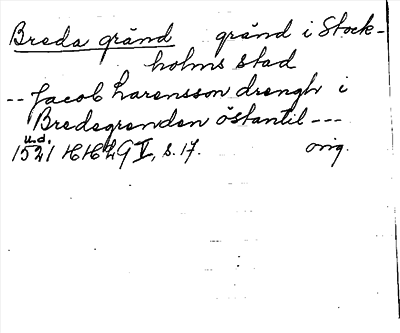 Breda gränd gränd i Stock-
holms stad
-- Jacob Larensson drengh i
Bredegrenden östantil ---
u.d.
1521 HH LG I, s. 17. orig.